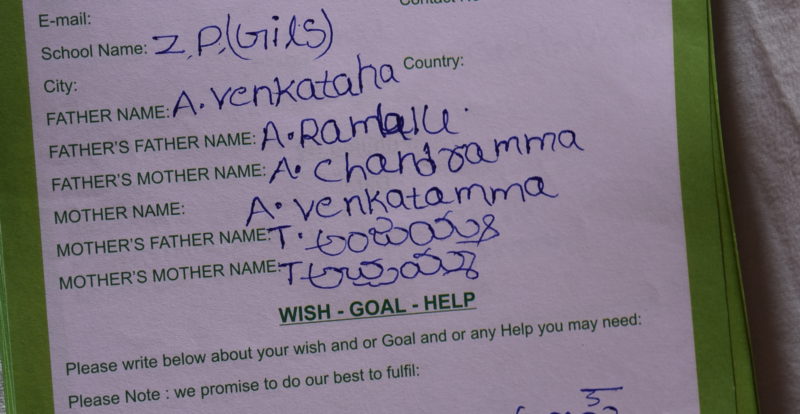 E-mail:
School Name: Z.P.(Gils)
City: Country:
FATHER NAME: A. Venkataha
FATHER'S FATHER NAME: A. Ramalu.
FATHER'S MOTHER NAME: A. Chandramma
MOTHER NAME: A. Venkatamma
MOTHER'S FATHER NAME: T.
MOTHER'S MOTHER NAME: T
WISH - GOAL - HELP
Please write below about your wish and or Goal and or any Help you may need:
Please Note : we promise to do our best to fulfil: